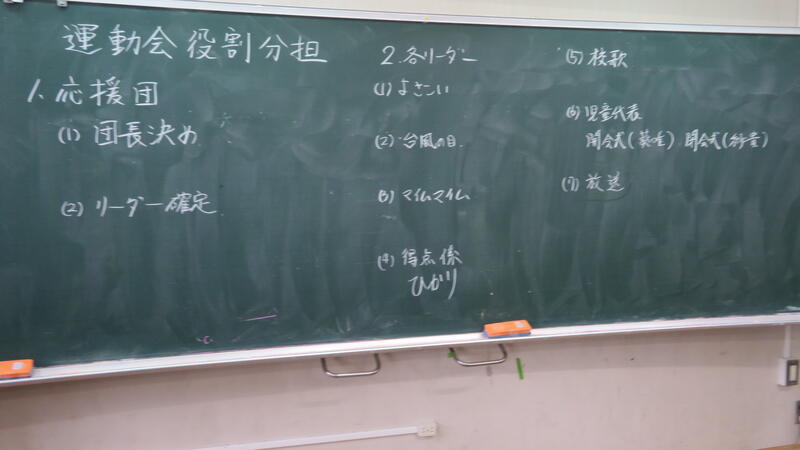 運動会役割分担
1. 応援団
(1) 団長決め
(2) リーダー確定
2. 各リーダー
(1) よさこい
(2) 台風の目
(3) マイムマイム
(4) 得点係
ひかり
(5) 校歌
(6) 児童代表
開会式( ) 閉会式( )
(7) 放送